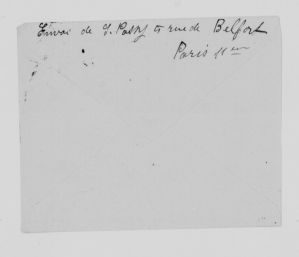 Envoi de J. Pasky 15 rue de Belfort
Paris 11em